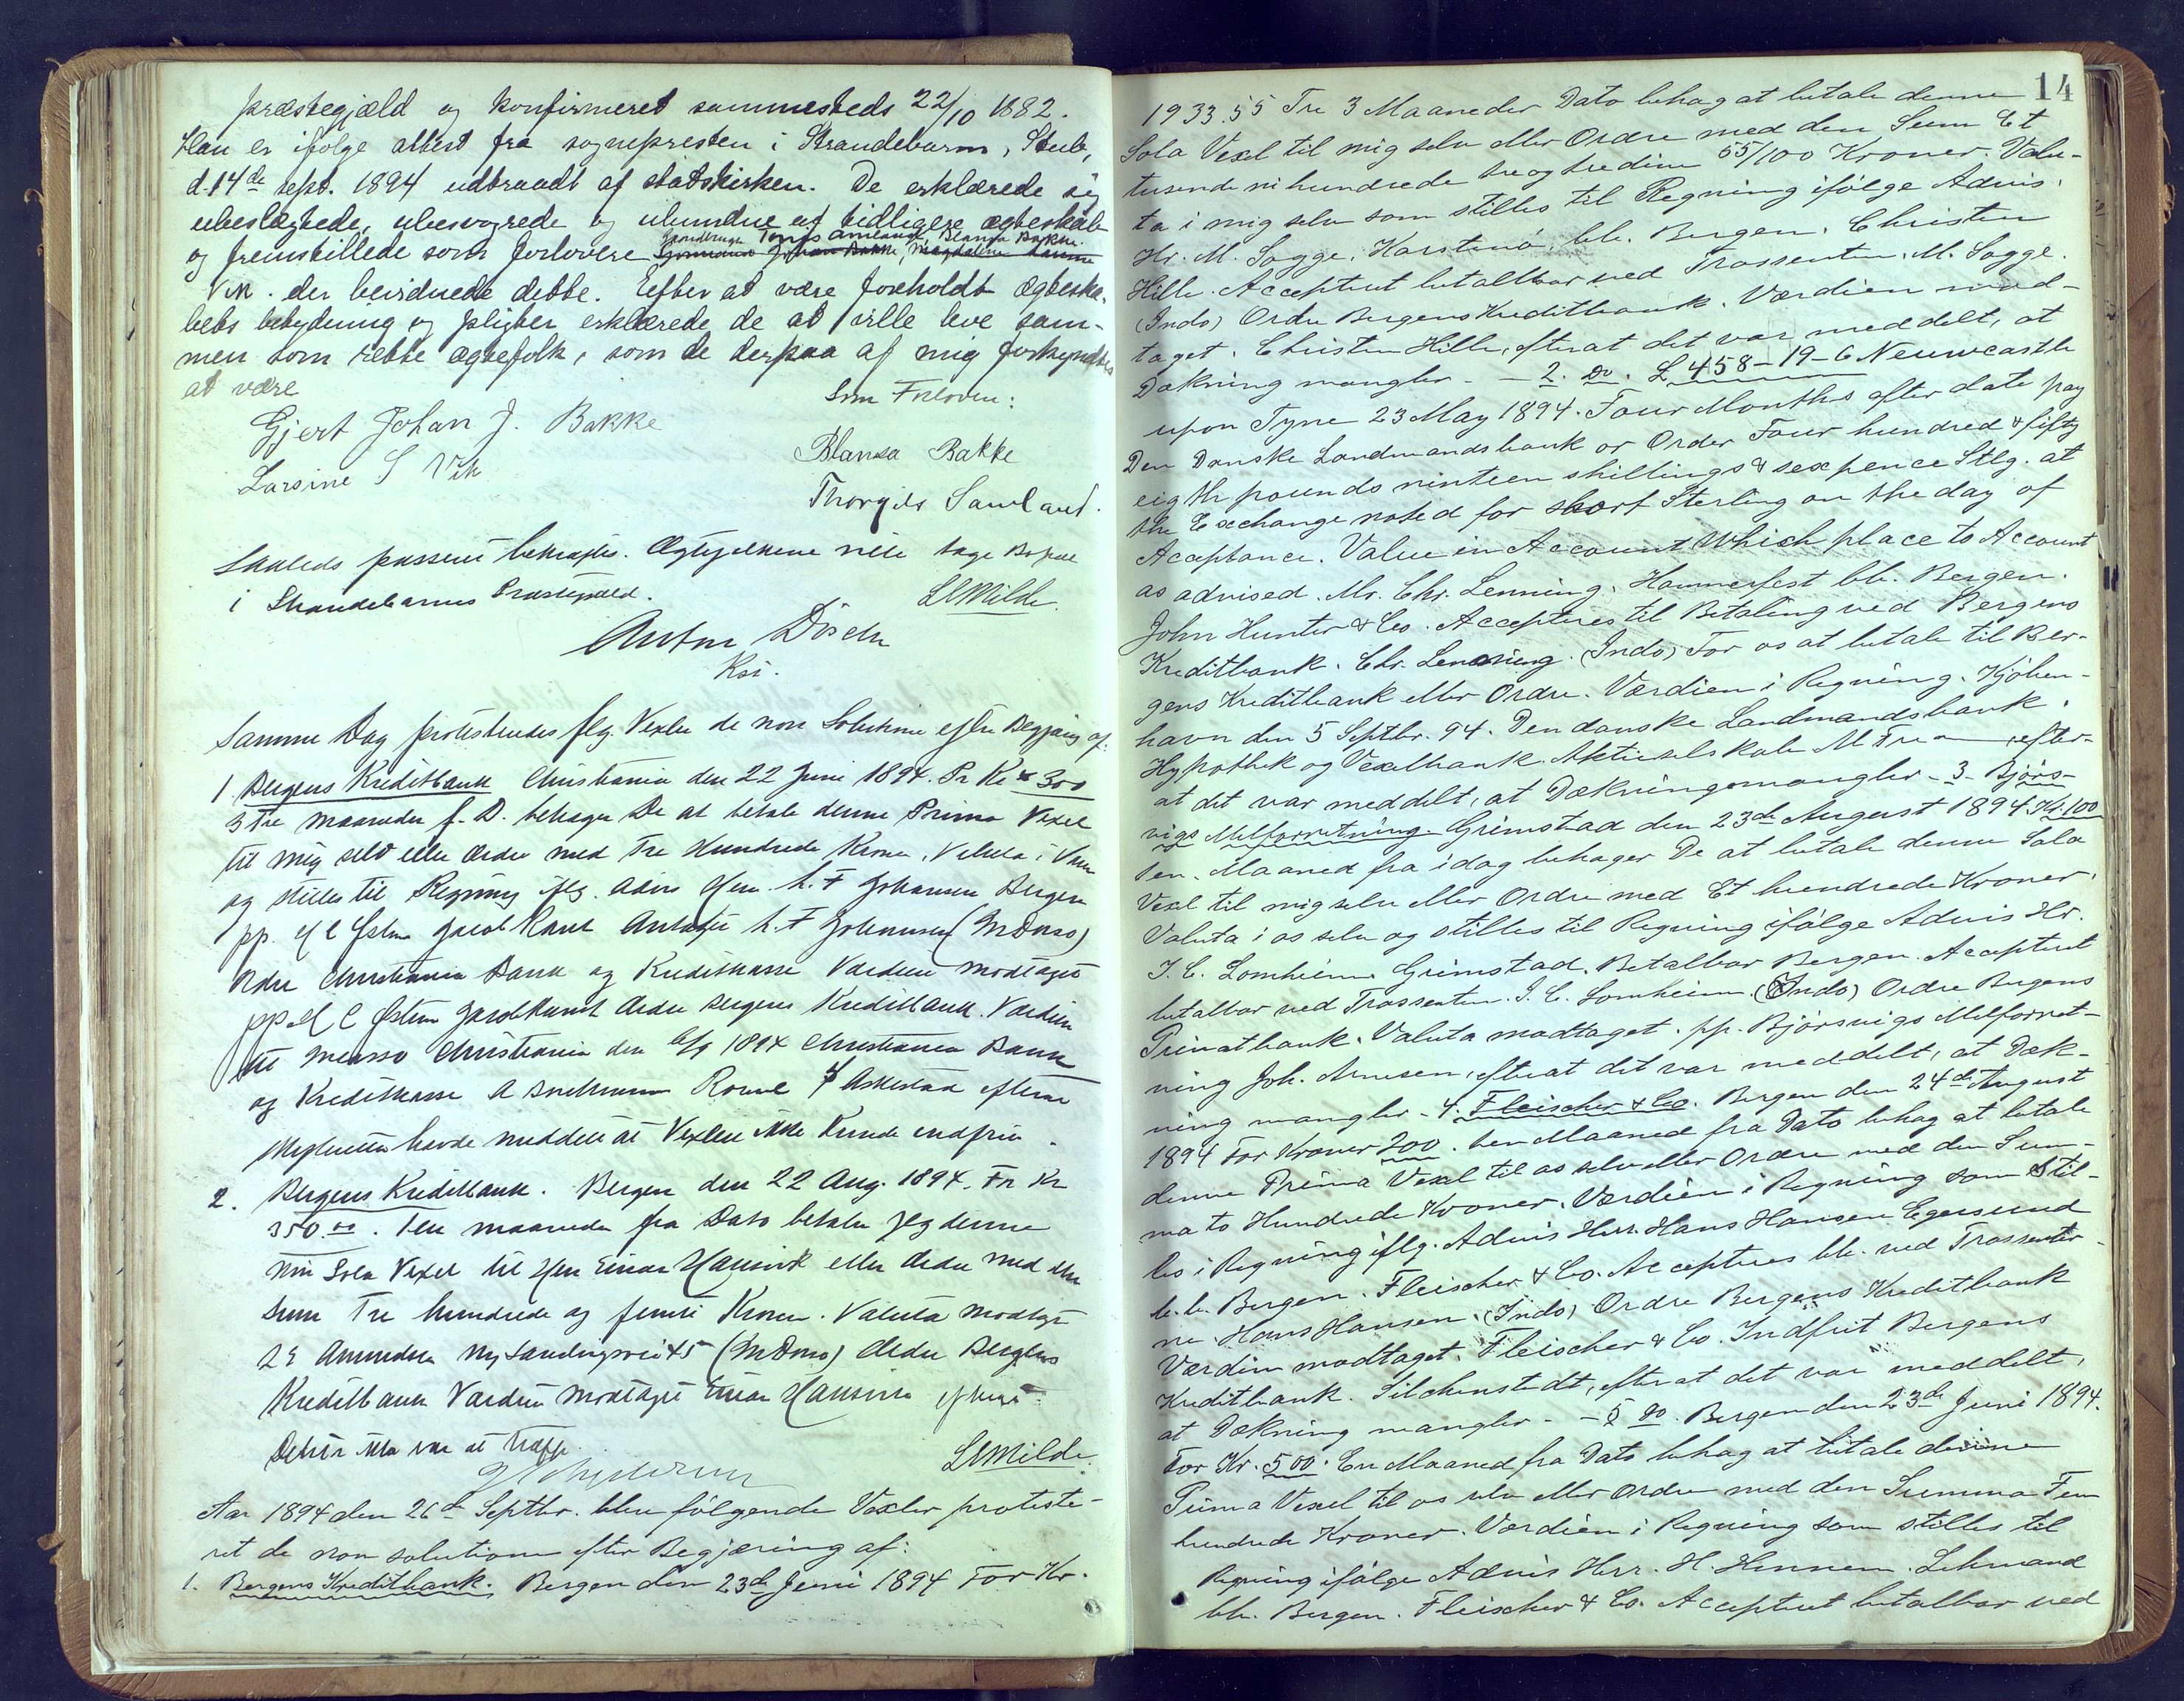 præstegjæld og konfirmeret sammesteds 22/10 1882.
Han er ifölge attest fra sognepresten i Strandebarm, Steeb,
d. 14de sept. 1894 udtraadt af statskirken. De erklærede sig
ubeslægtede, ubesvogrede og ubundne af tidligere ægteskab
Gaardbruger Tönjes Amland Blansa Bakke.
og fremstillede som forlovere Johan Bakke, Magdalene
Vik. der bevidnede dette. Efter at være foreholdt ægteska-
bets betydning og pligter erklærede de at ville leve sam-
men som rette ægtefolk, som de derpaa af mig forkyndtes
at være
Som Forlovere:
Gjert Johan J. Bakke
Blansa Bakke
Larsine S Vik
Thorgils Samland.
Saaledes passeret bekræftes. Ægtefolkene ville tage Bopæl
i Strandebarms Præstegjæld.
LMilde.
Anton
Ksi.
Samme Dag protesteredes flg. Vexler de non Solutione efter Begjæring af:
1 Bergens Kreditbank Christiania den 22 Juni 1894. Pr Kr 300
3 Tre maaneder f. D. behager De at betale denne Prima Vexel
til mig selv eller Ordre med Tre Hundrede Kroner, Valuta i
og stilles til Regning iflg. advis Herr h. F Johansen Bergen
pp. Jacob Antaget h. F Johannsen (Indos)
Ordre Christiania Bank og Kreditkasse Værdien modtaget
pp Ordre Bergens Kreditbank. Værdien
til Incasso Christiania den 6/9 1894 Christiania Bank
og Kreditkasse efterat
havde meddelt at Vexlen ikke kunde indfries.
2. Bergens Kreditbank. Bergen den 22 Aug. 1894. For Kr
350.00. Een maaned fra Dato betaler Jeg denne
min Sola Vexel til Herr Einar Hansen eller Ordre med den
Sum Tre hundrede og femti Kroner. Valuta modtaget
Amundsen Ny Sandviksvei 45 (Indos) Ordre Bergens
Kreditbank Værdien modtaget Einar Hansen efterat
Debitor ikke var at træffe.
LMilde.
Aar 1894 den 26de Septbr. blev følgende Vexler proteste-
ret de non solutione efter Begjæring af:
1. Bergens Kreditbank. Bergen den 23de Juni 1894 For Kr.
14
1933.55 Tre 3 Maaneder Dato behag at betale denne
Sola Vexel til mig selv eller Ordre med den Sum Et
tusende ni hundrede tre og tredive 55/100 Kroner. Valu-
ta i mig selv som stilles til Regning ifölge Advis.
Hr. M. Sogge, Karstenö. bb. Bergen. Christen
Hille. Accepteret betalbar ved Trassenten. M. Sogge.
(Indo) Ordre Bergens Kreditbank. Værdien mod-
taget. Christen Hille, efterat det var meddelt, at
Dækning mangler. - 2. Do. £ 458-19-6 Neuwcastle
upon Tyne 23 May 1894. Four Months after date pay
Den Danske Landmandsbank or Order Four hundred & fifty
eigth pounds ninteen shillings & sexpence Stlg. at
the Exchange noted for short Sterling on the day of
Acceptance. Value in Account Which place to Account
as advised. Mr. Chr. Lenning. Hammerfest bb. Bergen.
John Hunter & Co. Accepteres til Betaling ved Bergens
Kreditbank. Chr. Lenning. (Indo) For os at betale til Ber-
gens Kreditbank eller Ordre. Værdien i Regning. Kjöben-
havn den 5 Septbr. 94. Den danske Landmandsbank.
Hypothek og Vexelbank Aktieselskab , efter-
at det var meddelt, at Dækning mangler. - 3. Björs-
vigs Melforretning. Grimstad den 23de August 1894. Kr. 100
Een Maaned fra idag behager De at betale denne Sola
Vexel til mig selv eller Ordre med Et hundrede Kroner.
Valuta i os selv og stilles til Regning ifölge Advis Hr.
I. C. Lomheim Grimstad. Betalbar Bergen. Accepteret
betalbar ved Trassenten. I. C. Lomheim. (Indo) Ordre Bergens
Privatbank. Valuta modtaget. pp. Björsvigs Melforret-
ning Joh. Arnesen, efterat det var meddelt, at Dæk-
ning mangler - 4. Fleischer & Co. Bergen den 24de August
1894 For Kroner 200. Een Maaned fra Dato behag at betale
denne Prima Vexel til os selv eller Ordre med den Sum-
ma to Hundrede Kroner. Værdien i Regning som stil-
les i Regning iflg. Advis Herr. Hans Hansen Egersund
b.b. Bergen. Fleischer & Co. Accepteres bb. ved Trassenter-
ne. Hans Hansen. (Indo) Ordre Bergens Kreditbank
Værdien modtaget. Fleischer & Co. Indfriet Bergens
Kreditbank. Silchenstedt, efterat det var meddelt,
at Dækning mangler. - 5 do. Bergen den 23de Juni 1894.
For Kr. 500. En Maaned fra Dato behag at betale denne
Prima Vexel til os selv eller Ordre med den Summa Fem
hundrede Kroner. Værdien i Regning som stilles til
Regning ifölge Advis Herr. H. Hennem. Lehmand
bb. Bergen. Fleischer & Co. Accepteret betalbar ved